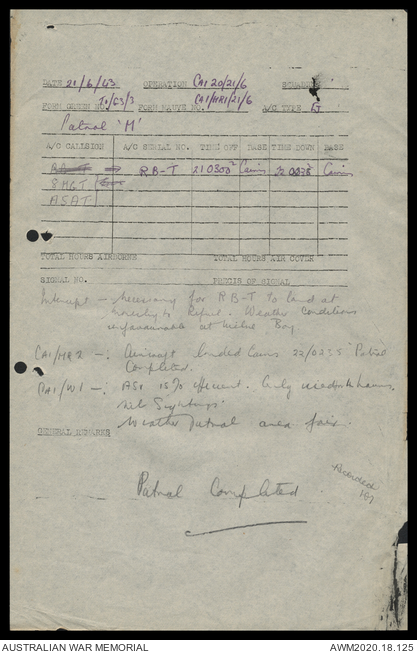 DATE 21/6/43 OPERATION CAI 20/21/6 SQUADRON
FORM GREEN NO. J1/63/3 FORM MAUVE NO. CAI/HR1/21/6 A/C TYPE G
Patrol 'M'
A/C CALLSIGN A/C SERIAL NO. TIME OFF BASE TIME DOWN BASE
RB-T 210800Z Cairns Cairns
8MGT
ASAT
TOTAL HOURS AIRBORNE TOTAL HOURS AIR COVER
SIGNAL NO. PRECIS OF SIGNAL
Intercept – necessary for RB-T to land at
to Refuel. Weather Conditions
unfavourable at Milne Bay
CAI/HR2 –: Aircraft landed Cairns 22/0235 Patrol
Completed.
CAI/W1 –: ASV 15% efficient. Only
Nil Sightings.
Weather patrol area fair.
GENERAL REMARKS
Recorded
Patrol Completed
AUSTRALIAN WAR MEMORIAL AWM2020.18.125